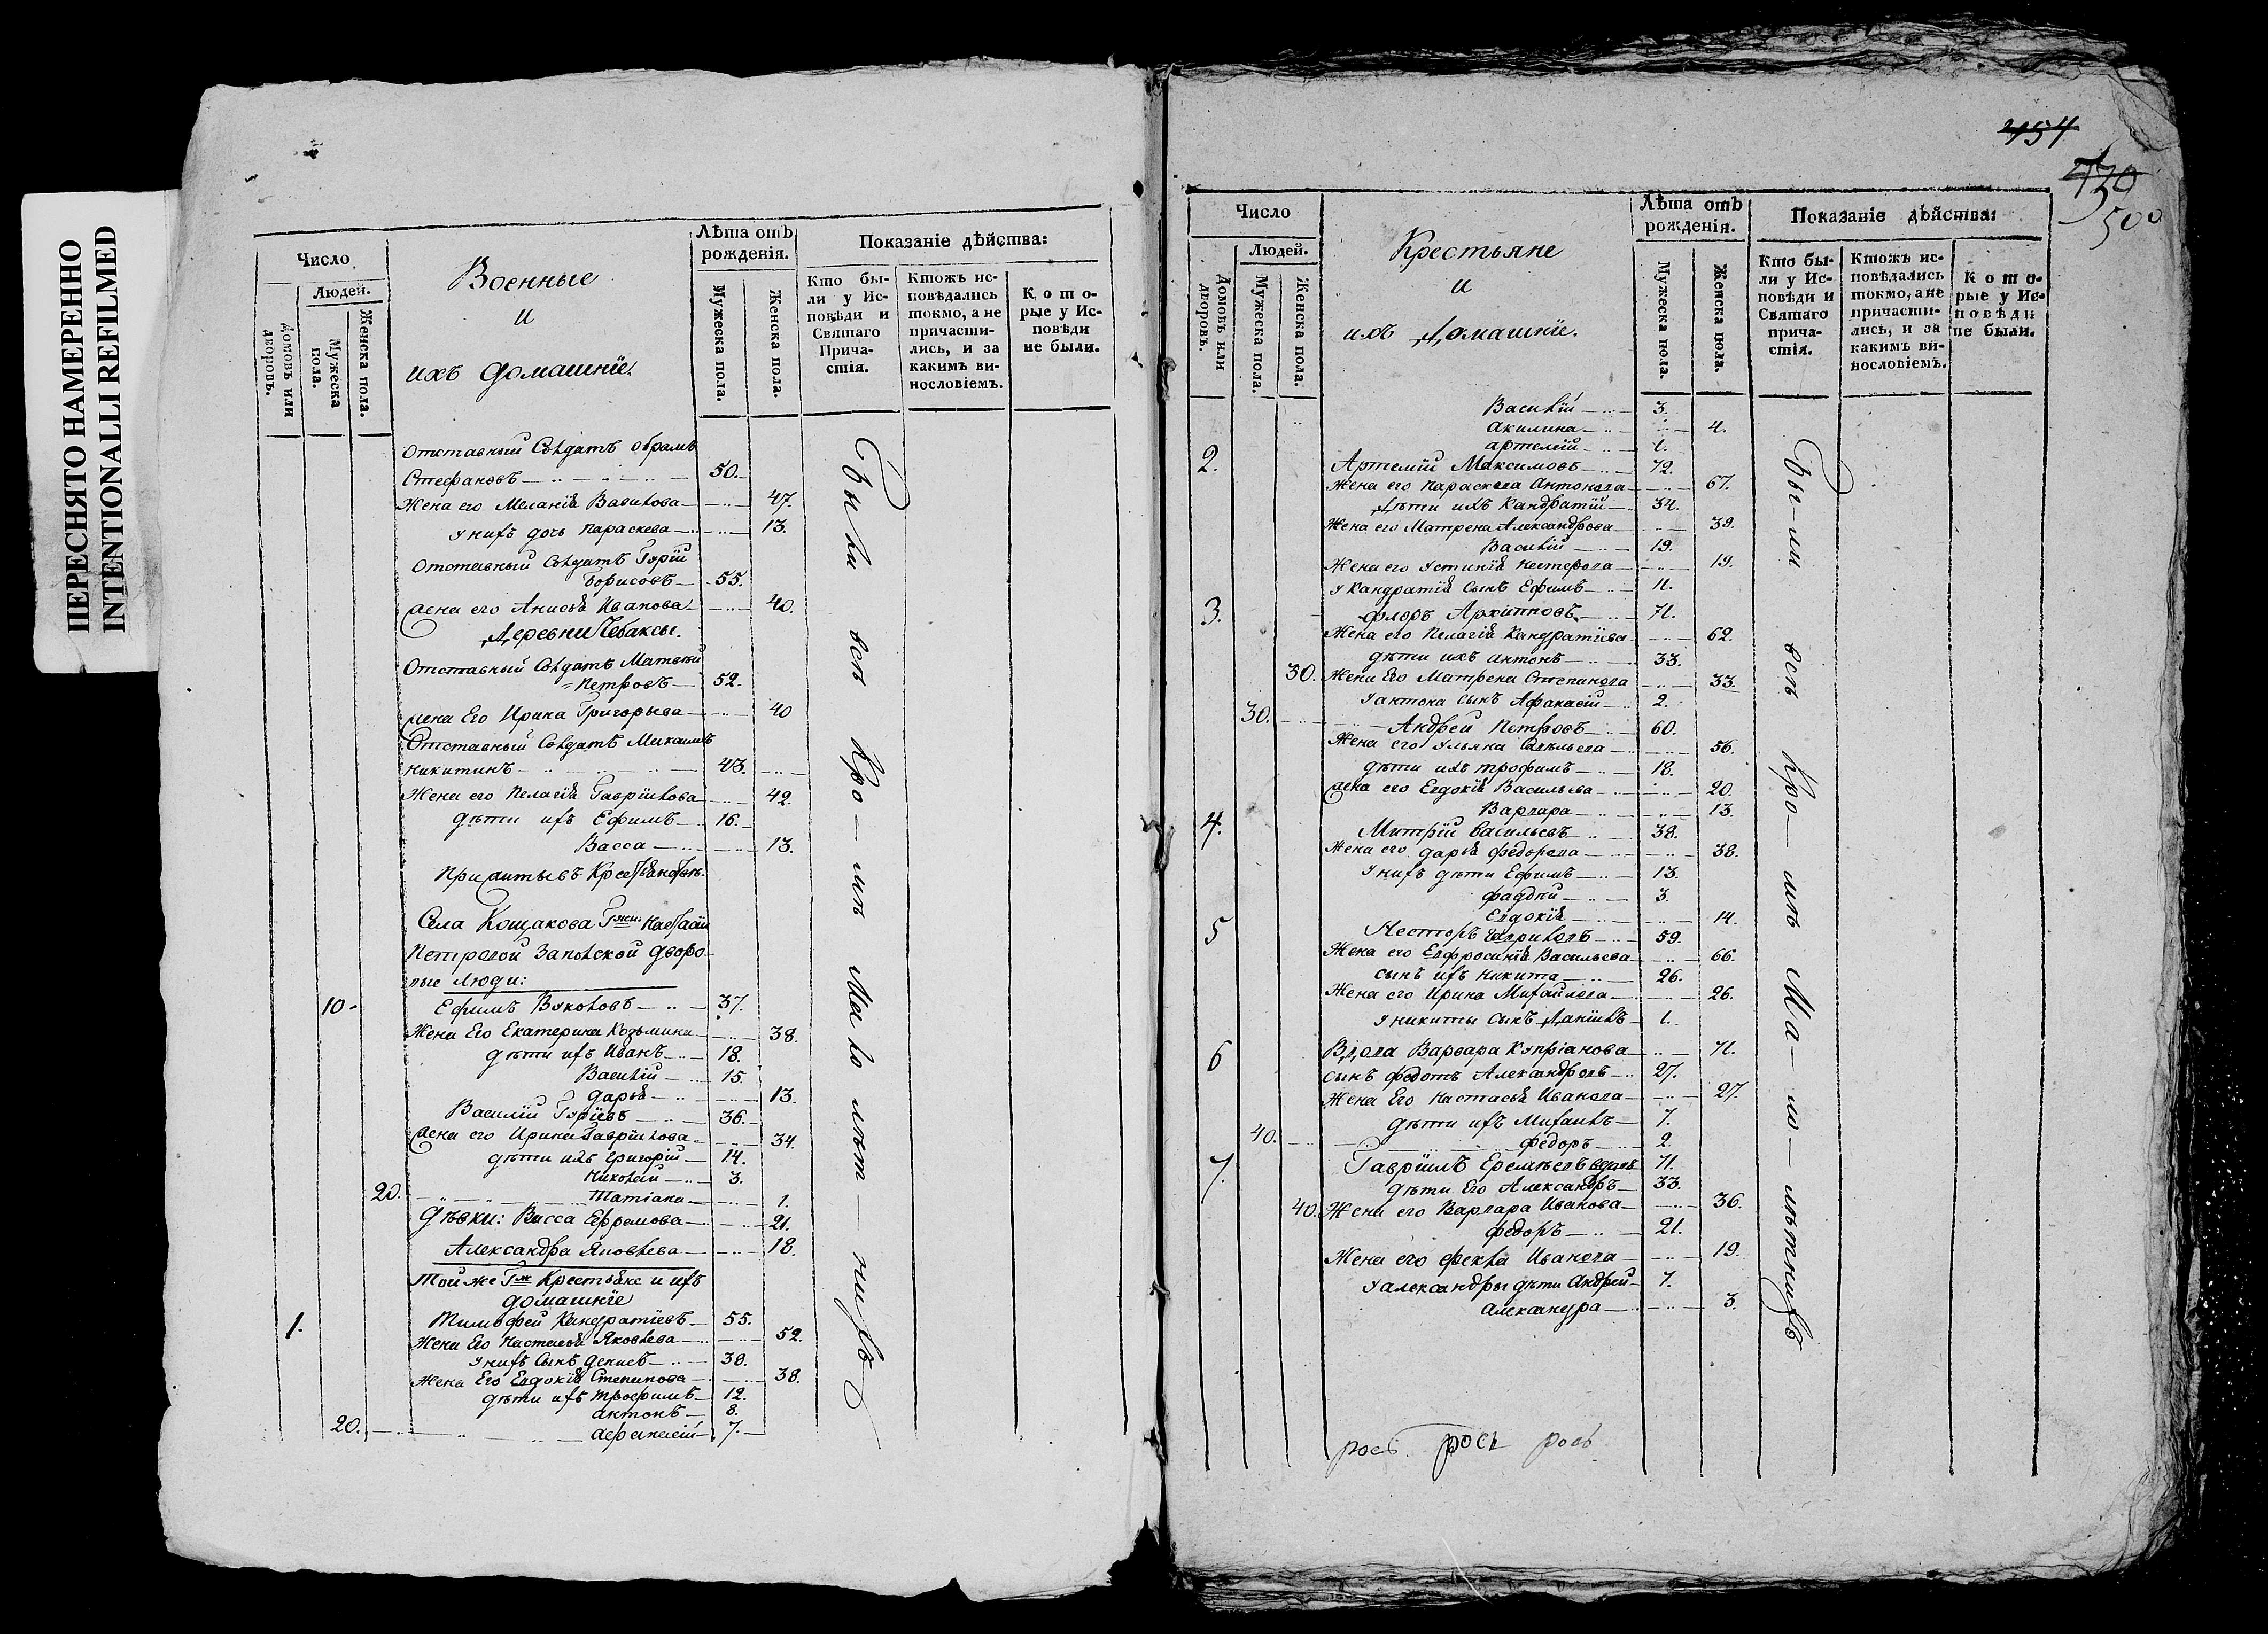 ПЕРЕСНЯТО НАМЕРЕННО
INTENTIONALLI REFILMED
Число
Людей.
Домовъ или дворовъ.
Мужеска пола.
Женска пола.
Военные
и
ихъ домашніе.
Лѣта отъ рожденія.
Мужеска пола.
Женска пола.
Показаніе дѣйства:
Кто бы-
ли у Ис-
повѣди и
Святаго
Прича-
стія.
Ктожъ ис-
повѣдались
токмо, а не
причасти-
лись, и за
какимъ ви-
нословіемъ.
Кото-
рые у Ис-
повѣди
не были.
Отставный Солдатъ Абрамъ
Стефановъ 50.
Жена его Меланія Василова 47.
у нихъ дочь Параскева 13.
Отставный Солдатъ Гурій
Борисовъ 55.
Жена его Анисья Иванова 40.
Деревни Чебаксы.
Отставный Солдатъ Матвей
Петровъ 52.
Жена Его Ирина Григорьева 40
Отставный Солдатъ Михаилъ
Никитинъ 43.
Жена его Пелагія Гаврилова 42.
дѣти ихъ Ефимъ 16.
Васса 13.
Села Кощакова Гжи
Петровой дворо-
вые люди:
10 Ефимъ Вуколовъ 37.
Жена Его Екатерина Козьмина 38.
дѣти ихъ Иванъ 18.
Василій 15.
Дарья 13.
Василій Гурьевъ 36.
Жена его Ирина Гаврилова 34.
дѣти ихъ Григорій 14.
Николай 3.
20. Татіана 1.
Дѣвки: Васса Ефремова 21.
Александра Яковлева 18.
Той же Гжи Крестьяне и ихъ
домашніе
1. Тимофей Кандратіевъ 55.
Жена Его Настасья Яковлева 52.
у нихъ Сынъ Денисъ 38.
Жена Его Евдокія Степанова 38.
дѣти ихъ Трофимъ 12.
Антонъ 8.
20. Афанасій 7.
Были всѣ Кро-мѣ мало лѣт-нихъ
454
430
500
Число
Людей.
Домовъ или дворовъ.
Мужеска пола.
Женска пола.
Крестьяне
и
ихъ Домашніе.
Лѣта отъ рожденія.
Мужеска пола.
Женска пола.
Показаніе дѣйства:
Кто бы-
ли у Ис-
повѣди и
Святаго
прича-
стія.
Ктожъ ис-
повѣдались
токмо, а не
причасти-
лись, и за
какимъ ви-
нословіемъ.
Кото-
рые у Ис-
повѣди
не были.
Василій 3.
Акилина 4.
Артемій 1.
2. Артемій Максимовъ 72.
Жена его Параскева Антонова 67.
Дѣти ихъ Кандратій 34.
Жена его Матрена Александрова 39.
Василій 19.
Жена его Устинія Нестерова 19.
у Кандратія Сынъ Ефимъ 11.
3. Флоръ Архиповъ 71.
Жена его Пелагія Кандратіева 62.
дѣти ихъ Антонъ 33.
30. Жена Его Матрена Степанова 33.
у Антона сынъ Афанасій 2.
30. Андрей Петровъ 60.
Жена его Ульяна Савельева 56.
дѣти ихъ Трофимъ 18.
Жена его Евдокія Васильева 20.
Варвара 13.
4. Митрій Васильевъ 38.
Жена его Дарья Федорова 38.
у нихъ дѣти Ефимъ 13.
Фаддей 3.
Евдокія 14.
5 Несторъ Гавриловъ 59.
Жена его Евфросинія Васильева 66.
сынъ ихъ Никита 26.
Жена его Ирина Михайлова 26.
у Никиты Сынъ Даніилъ 1.
6 Вдова Варвара Купріанова 71.
сынъ Федотъ Александровъ 27.
Жена Его Настасья Иванова 27.
дѣти ихъ Михаилъ 7.
40. Федоръ 2.
7. Гавріилъ Еремѣевъ вдовъ 71.
дѣти Его Александръ 33.
40. Жена его Варвара Иванова 36.
Федоръ 21.
Жена его Фекла Иванова 19.
у Александры дѣти Андрей 7.
Александра 3.
Бы-ли всѣ Кро-мѣ Ма-ло-лѣтнихъ
рось рось рось